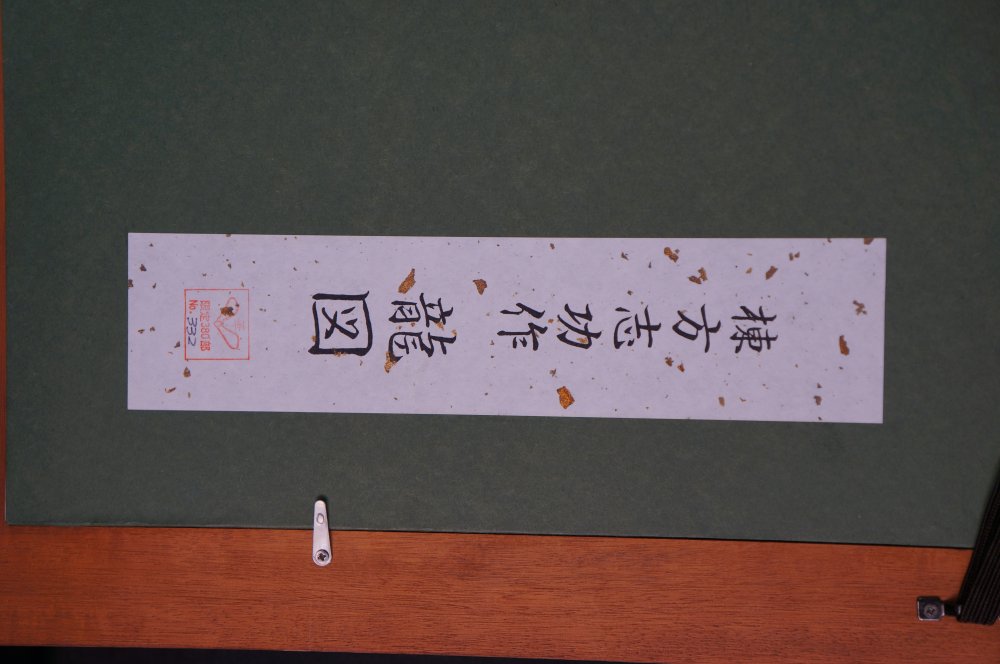 棟方志功作
龍図
限定380部
No. 332